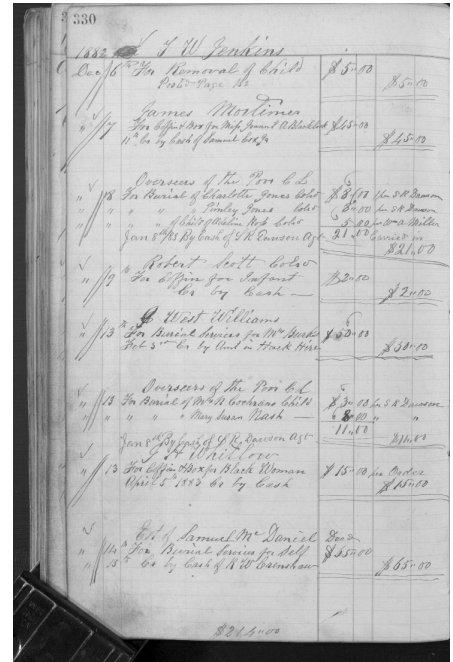 330
1882 T W Jenkins
Dec 6 For Removal of Child $5.00
Postd Page 183 $5.00
James Mortimer
" 7 For Coffin & Box for Miss A Blacklock $45.00
11th Cr by Cash of Samuel Cox Jr $45.00
Overseers of the Poor C L
" 8 For Burial of Charlotte Jones Cold $8.00 per S R Dawson
" " " " Jones Cold 8.00 per S R Dawson
" " " of Child of Cold 5.00 per Wm A Miller
Jan 8th /83 By Cash of S R Dawson Agt 21.00 Carried in
$21.00
Robert Scott Cold
" 9 For Coffin for Infant $2.00
Cr by Cash $2.00
G West Williams
" 13th For Burial Services for Mrs Burks $50.00
Feb 3rd Cr by Amt in Hack Hire $50.00
Overseers of the Poor C L
" 13 For Burial of Mrs R Cochrans Child $3.00 per S R Dawson
" " " " " Mary Susan Nash 8.00 " "
11.00
Jan 8th By Cash of S R Dawson Agt $11.00
G H Whitlow
" 13 For Coffin & Box for Black Woman $15.00 per Order
April 5th 1883 Cr by Cash $15.00
Est of Samuel Mc Daniel Decd
" 14th For Burial Services for Self $65.00
" 15th Cr by Cash of R W Crenshaw $65.00
$214.00